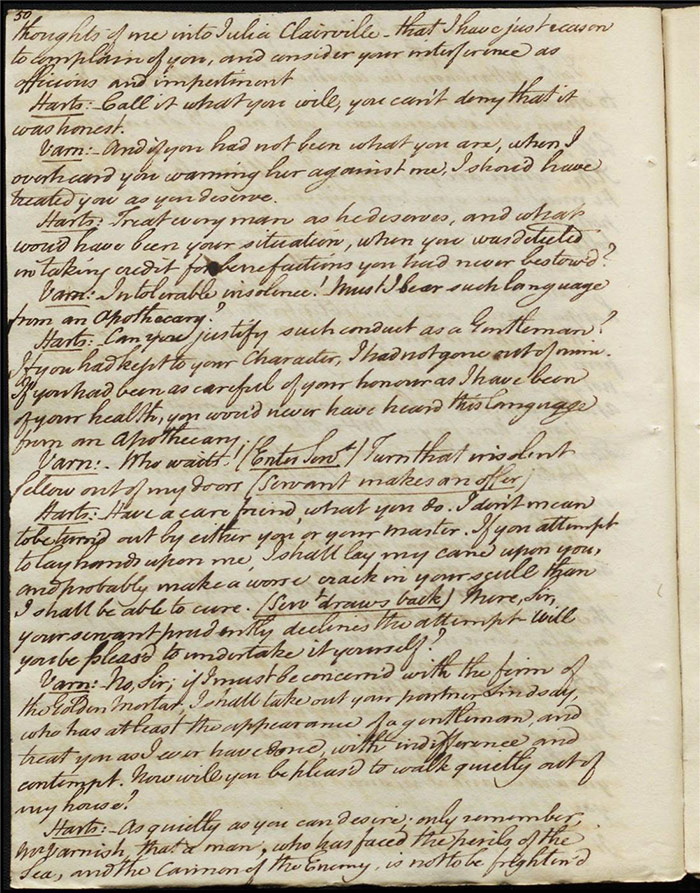 50
thoughts of me into Julia Clairville - that I have just reason
to complain of you, and consider your interference as
officious and impertinent
Harts: Call it what you will, you can't deny that it
was honest.
Varn: - And if you had not been what you are, when I
overheard you warning her against me, I should have
treated you as you deserve.
Harts: Treat every man as he deserves, and what
would have been your situation, when you was detected
in taking credit for benefactions you had never bestow'd?
Varn: Intolerable insolence! Must I bear such language
from an Apothecary?
Harts: Can you justify such conduct as a Gentleman?
If you had kept to your Character, I had not gone out of mine.
If you had been as careful of your honour as I have been
of your health, you would never have heard this language
from an Apothecary.
Varn: - Who waits! (Enter Servt) Turn that insolent
fellow out of my doors (Servant makes an offer)
Harts: Have a care friend what you do. I don't mean
to be turn'd out by either you or your master. If you attempt
to lay hands upon me, I shall lay my cane upon you,
and probably make a worse crack in your scull than
I shall be able to cure. (Servt draws back) There, Sir,
your servant prudently declines the attempt - Will
you be pleas'd to undertake it yourself?
Varn: - No, Sir; if I must be concern'd with the firm of
the Golden Mortar, I shall take out your partner Lindsay,
who has at least the appearance of a gentleman, and
treat you as I ever have done, with indifference and
contempt. Now will you be pleas'd to walk quietly out of
my house?
Harts: - As quietly as you can desire; only remember,
Mr Varnish, that a man, who has faced the perils of the
Sea, and the Cannon of the Enemy, is not to be frighten'd